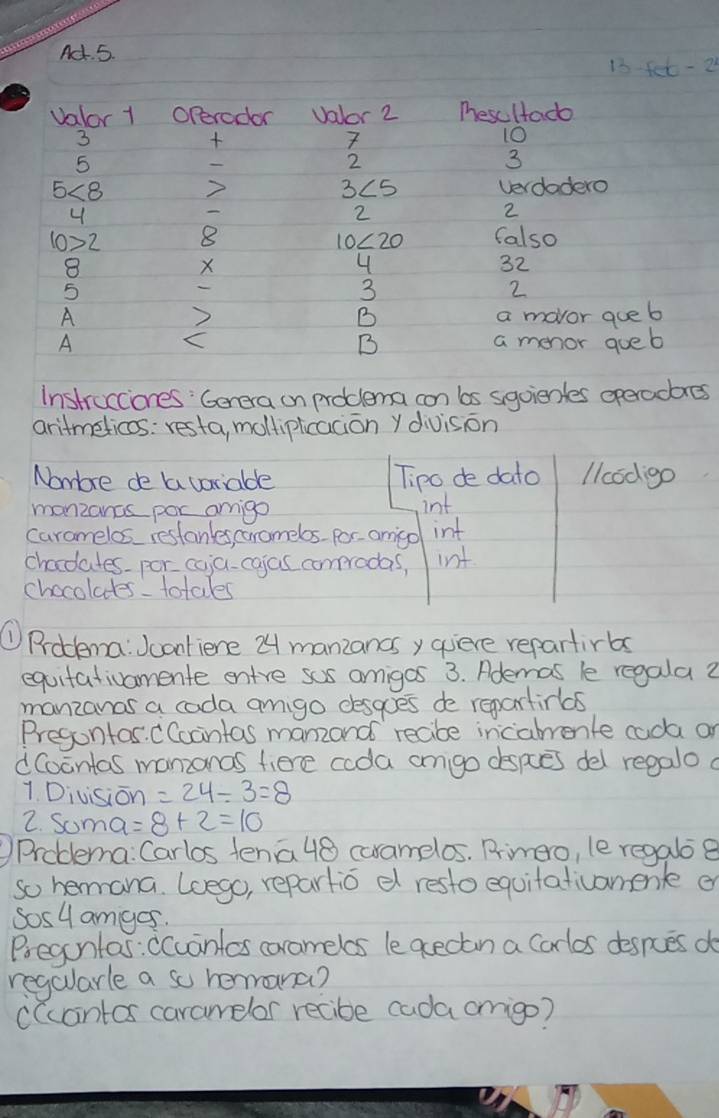 Act. 5.
13-feb-2
Valor 1 Operador Valor 2 Resultado
3 + 7 10
5 - 2 3
5<8 > 3<5 Verdadero
4 - 2 2
10>2 8 10<20 falso
8 x 4 32
5 - 3 2
A > B a mayor que b
A < B a menor que b
Instrucciones: Genera un problema con los siguientes operadores
aritmeticos: resta, multiplicación y división
Nombre de la variable Tipo de dato //código
manzanas_por amigo int
caramelos_restantes, caramelos-por-amigo int
chocolates-por-caja-cajas compradas, int
chocolates-totales
① Problema: Juan tiene 24 manzanas y quiere repartirlas
equitativamente entre sus amigos 3. Ademas le regala 2
manzanas a cada amigo despues de repartirlas
Preguntas: ¿Cuántas manzanas recibe inicialmente cada
¿Cuántas manzanas tiene cada amigo después del regalo
1. División = 24÷3=8
2. Suma = 8+2=10
Problema: Carlos tenía 48 caramelos. Primero, le regaló 8
su hermana. Luego, repartió el resto equitativamente
sus 4 amigos.
Preguntas: ¿Cuántos caramelos le quedan a Carlos después de
regalarle a su hermana?
¿Cuántos caramelos recibe cada amigo?